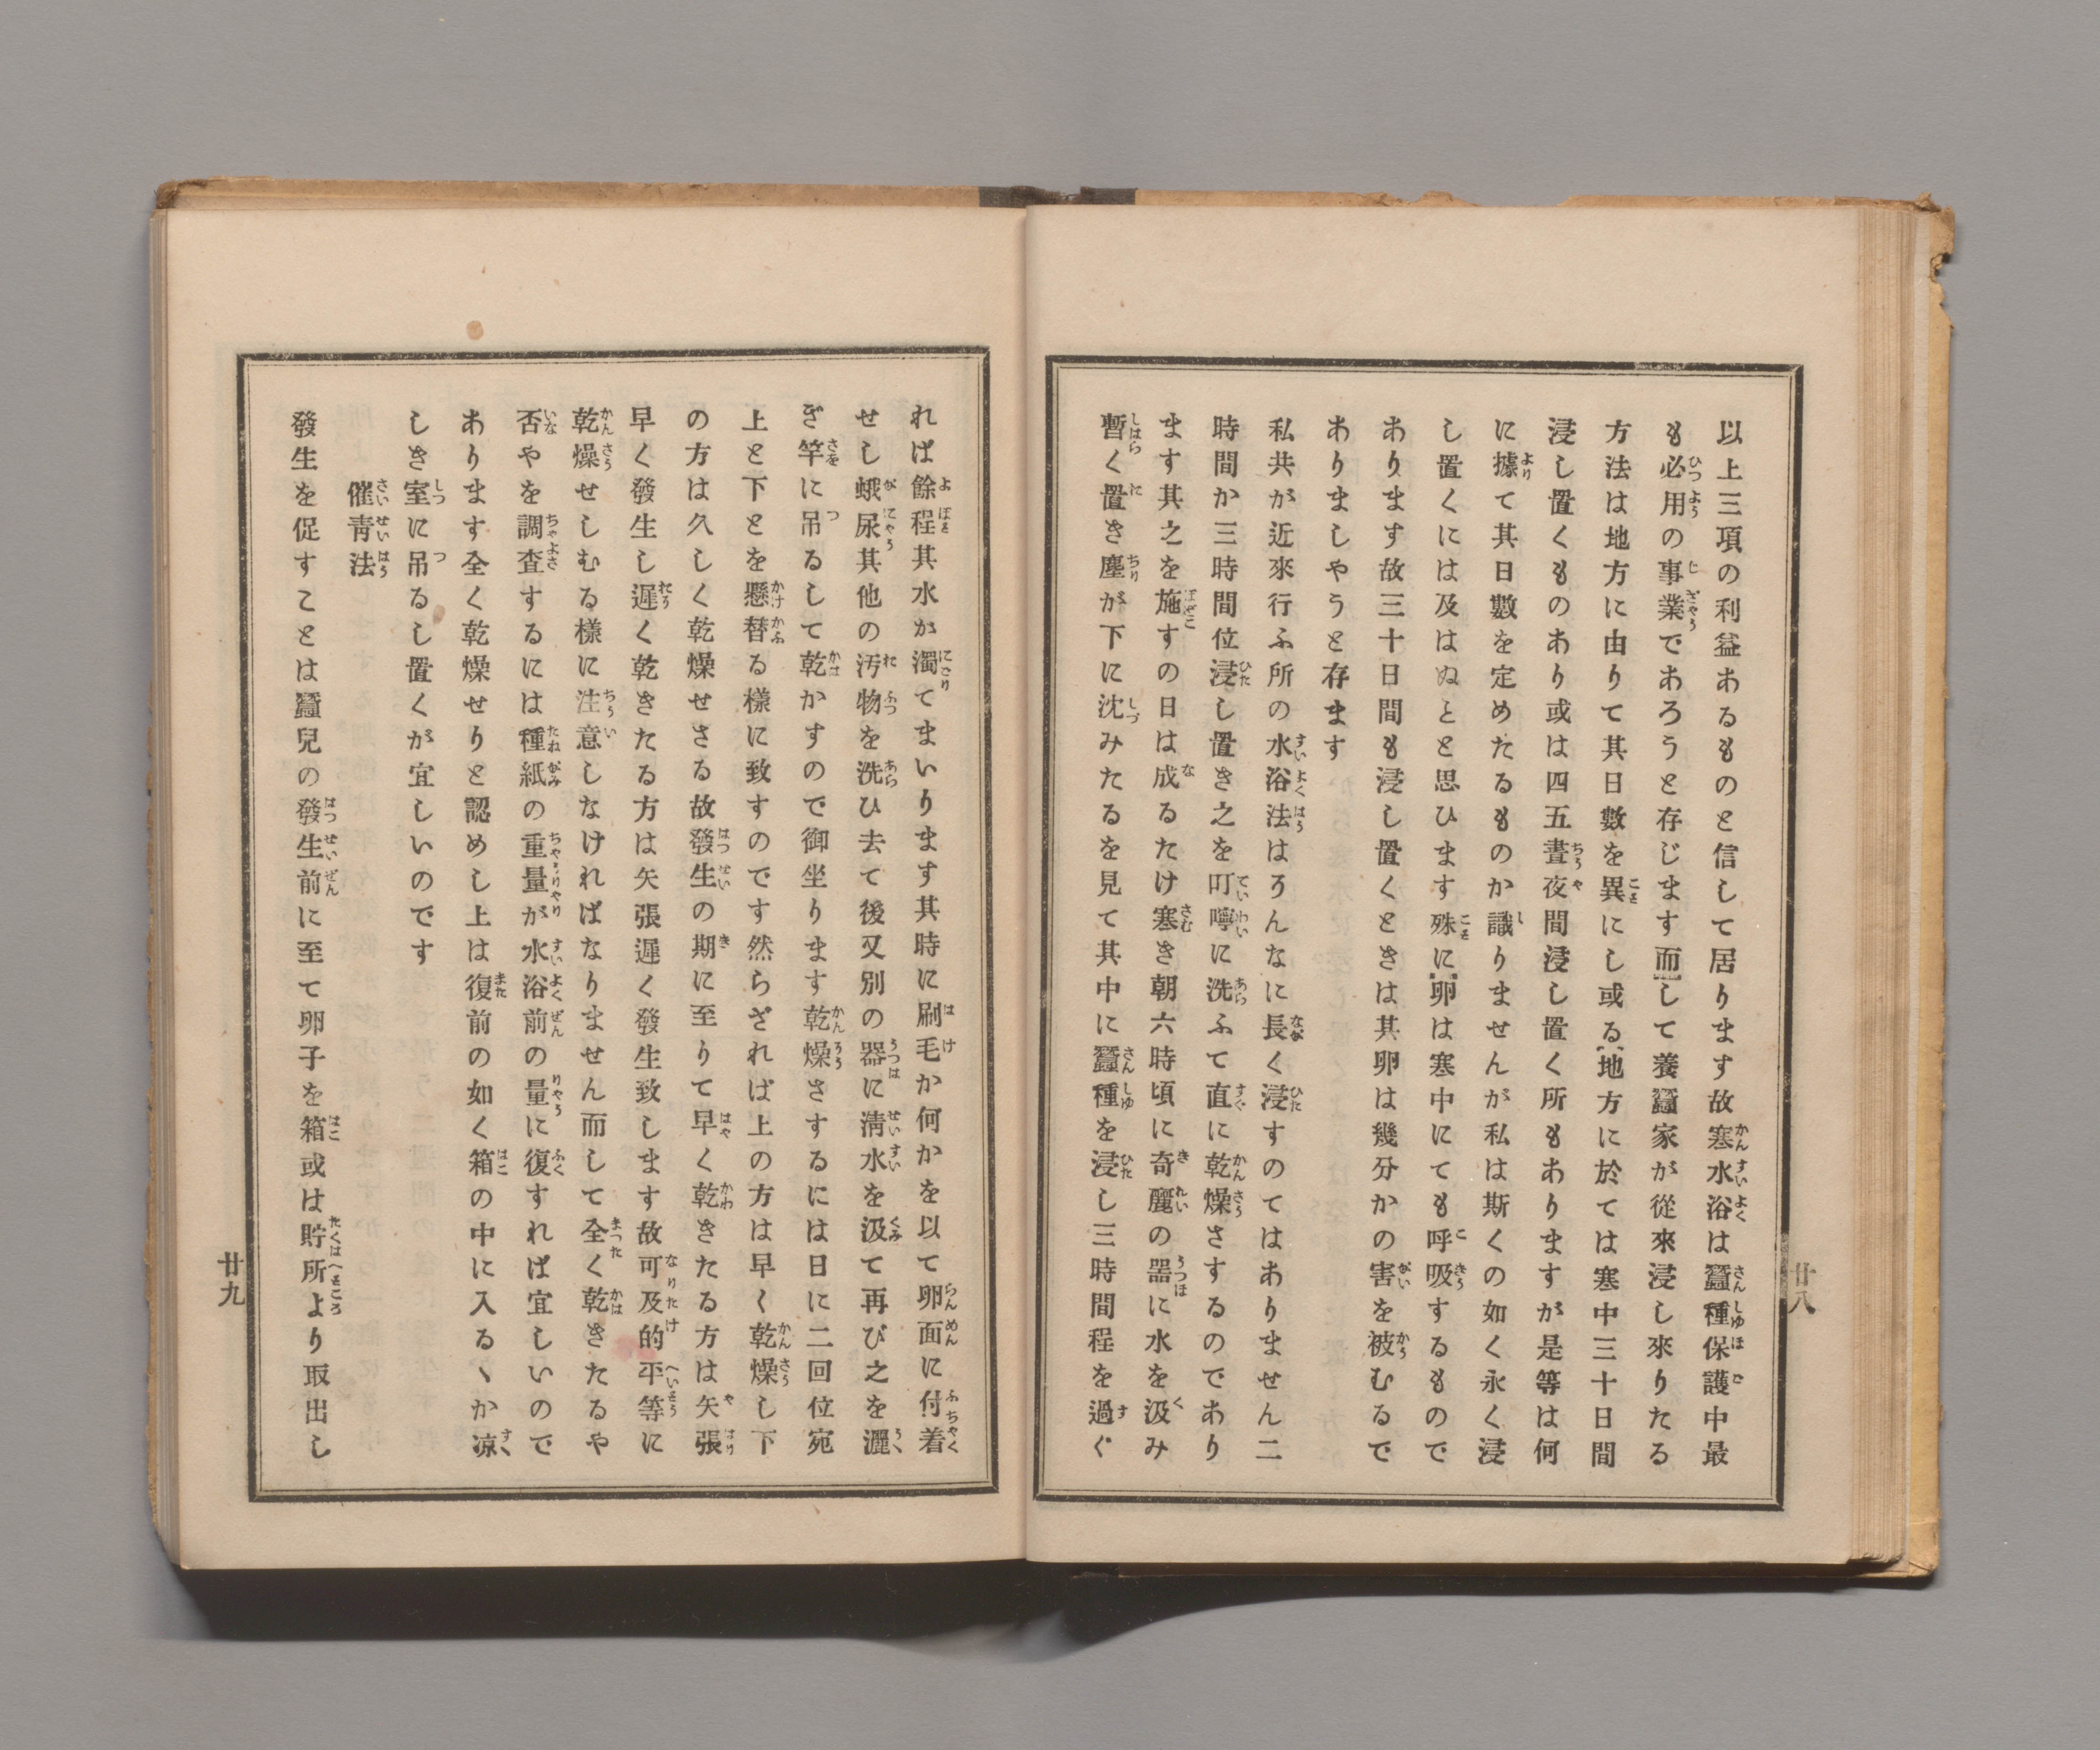 以上三項の利益あるものと信して居ります故寒水浴は蠶種保護中最
も必用の事業であろうと存じます而して養蠶家が從來浸し來りたる
方法は地方に由りて其日數を異にし或る地方に於ては寒中三十日間
浸し置くものあり或は四五晝夜間浸し置く所もありますが是等は何
に據て其日數を定めたるものか識りませんが私は斯くの如く永く浸
し置くには及はぬとと思ひます殊に卵は寒中にても呼吸するもので
あります故三十日間も浸し置くときは其卵は幾分かの害を被むるで
ありましやうと存ます
私共が近來行ふ所の水浴法はろんなに長く浸すのてはありません二
時間か三時間位浸し置き之を叮嚀に洗ふて直に乾燥さするのであり
ます其之を施すの日は成るたけ寒き朝六時頃に奇麗の器に水を汲み
暫く置き塵が下に沈みたるを見て其中に蠶種を浸し三時間程を過ぐ
廿八
れば餘程其水が濁てまいります其時に刷毛か何かを以て卵面に付着
せし蛾尿其他の汚物を洗ひ去て後又別の器に淸水を汲て再び之を灑
ぎ竿に吊るして乾かすので御坐ります乾燥さするには日に二回位宛
上と下とを懸替る樣に致すのです然らざれば上の方は早く乾燥し下
の方は久しく乾燥せさる故發生の期に至りて早く乾きたる方は矢張
早く發生し遲く乾きたる方は矢張遲く發生致します故可及的平等に
乾燥せしむる樣に注意しなければなりません而して全く乾きたるや
否やを調査するには種紙の重量が水浴前の量に復すれば宜しいので
あります全く乾燥せりと認めし上は復前の如く箱の中に入るゝか凉
しき室に吊るし置くが宜しいのです
催靑法
發生を促すことは蠶兒の發生前に至て卵子を箱或は貯所より取出し
廿九